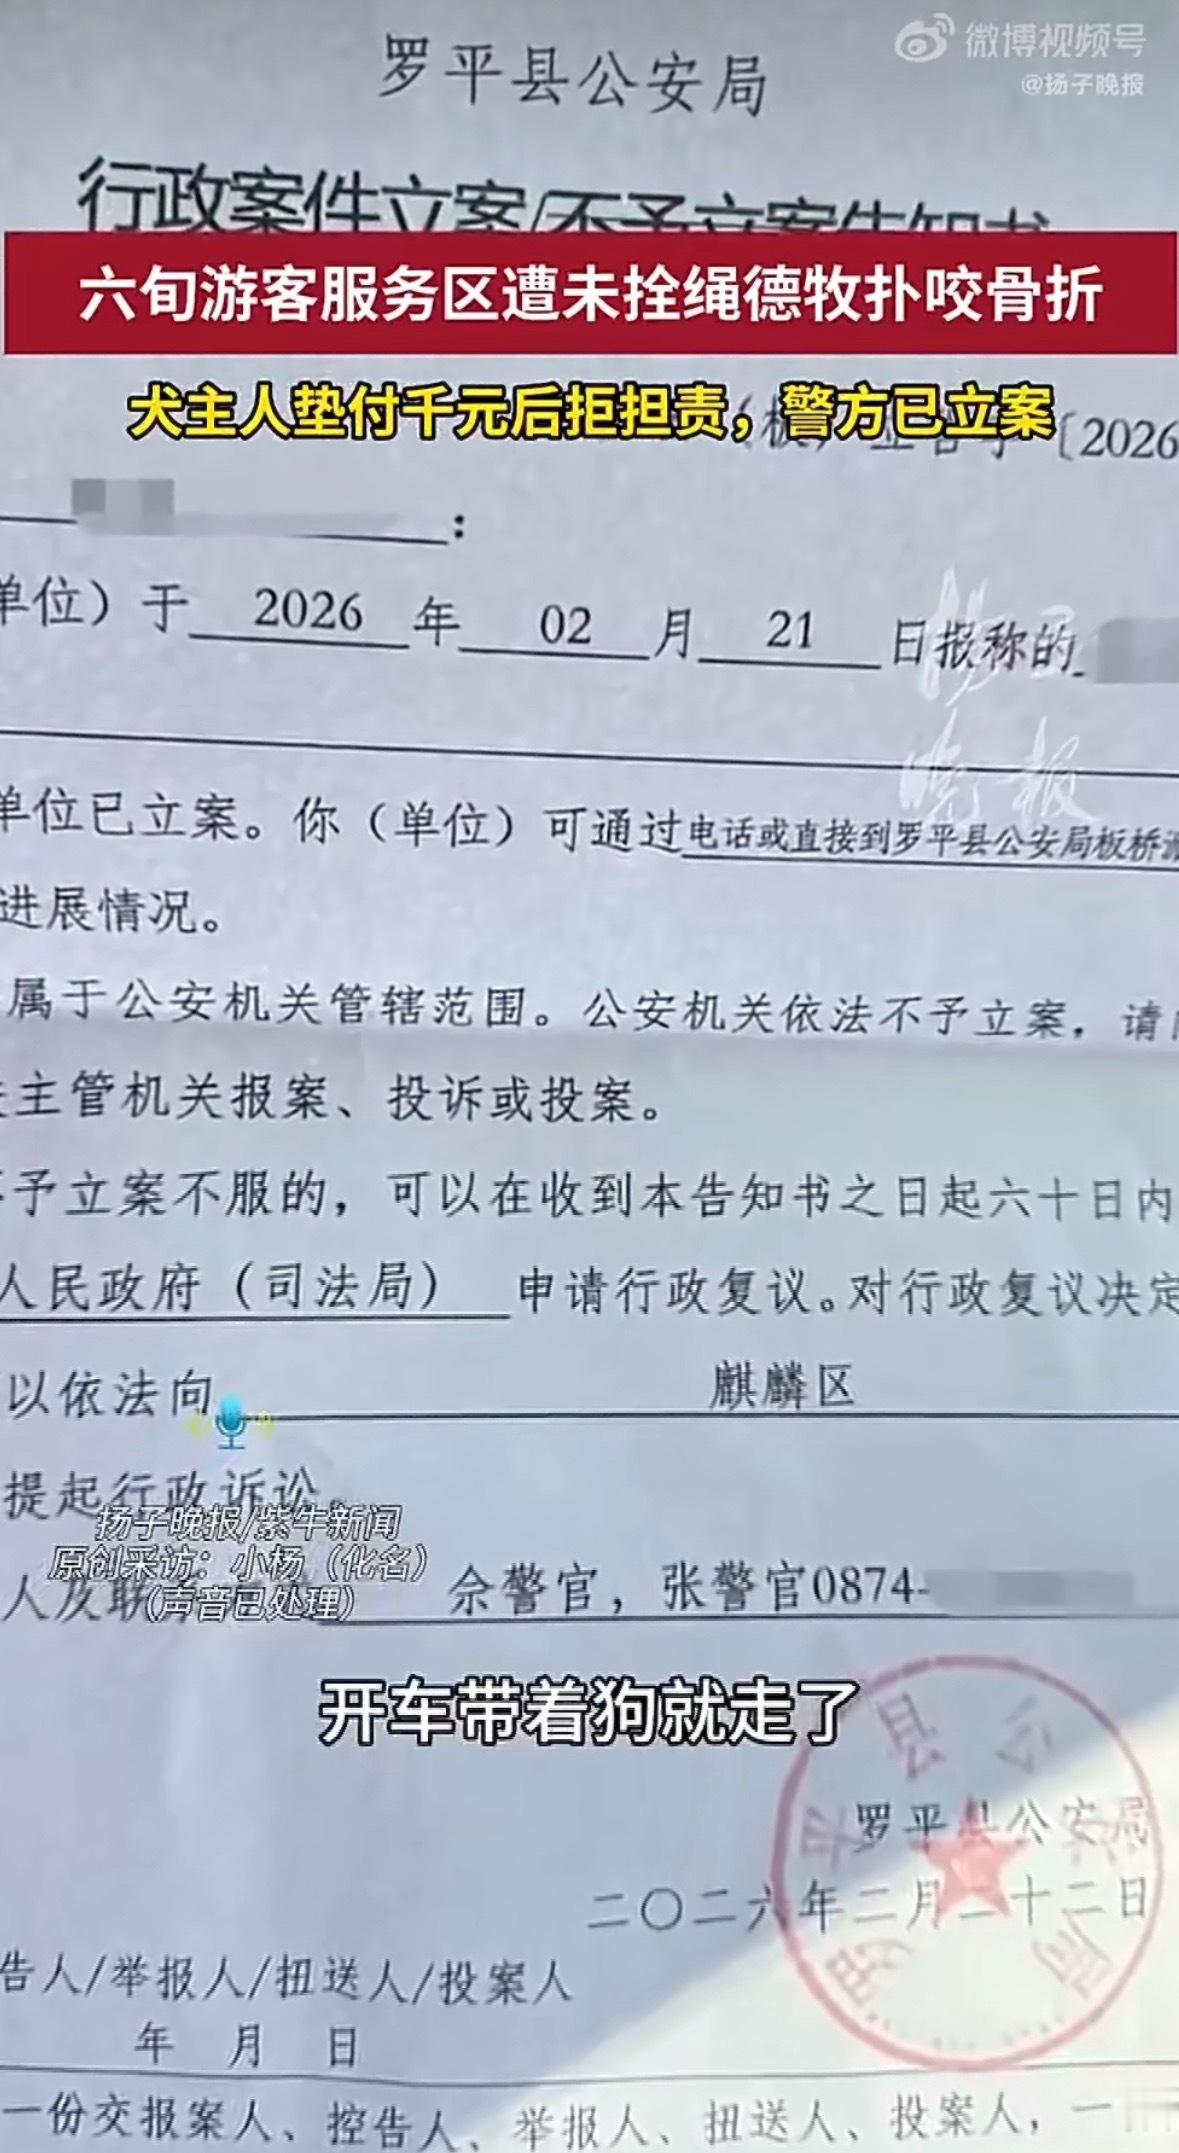 微博视频号
@扬子晚报
罗平县公安局
行政案件立案/不予立案告知书
六旬游客服务区遭未拴绳德牧扑咬骨折
犬主人垫付千元后拒担责，警方已立案
〔2026
：
单位）于 2026 年 02 月 21 日报称的
扬子
晚报
单位已立案。你（单位）可通过电话或直接到罗平县公安局板桥
进展情况。
属于公安机关管辖范围。公安机关依法不予立案，请
主管机关报案、投诉或投案。
予立案不服的，可以在收到本告知书之日起六十日内
人民政府（司法局） 申请行政复议。对行政复议决定
以依法向 麒麟区
提起行政诉讼。
扬子晚报/紫牛新闻
原创采访：小杨（化名）
（声音已处理）
人及联 佘警官，张警官0874-
开车带着狗就走了
罗平县公安局
罗平县公安局
二〇二六年二月二十二日
告人/举报人/扭送人/投案人
年 月 日
一份交报案人、控告人、举报人、扭送人、投案人，一